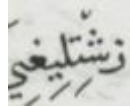 زشتليغي